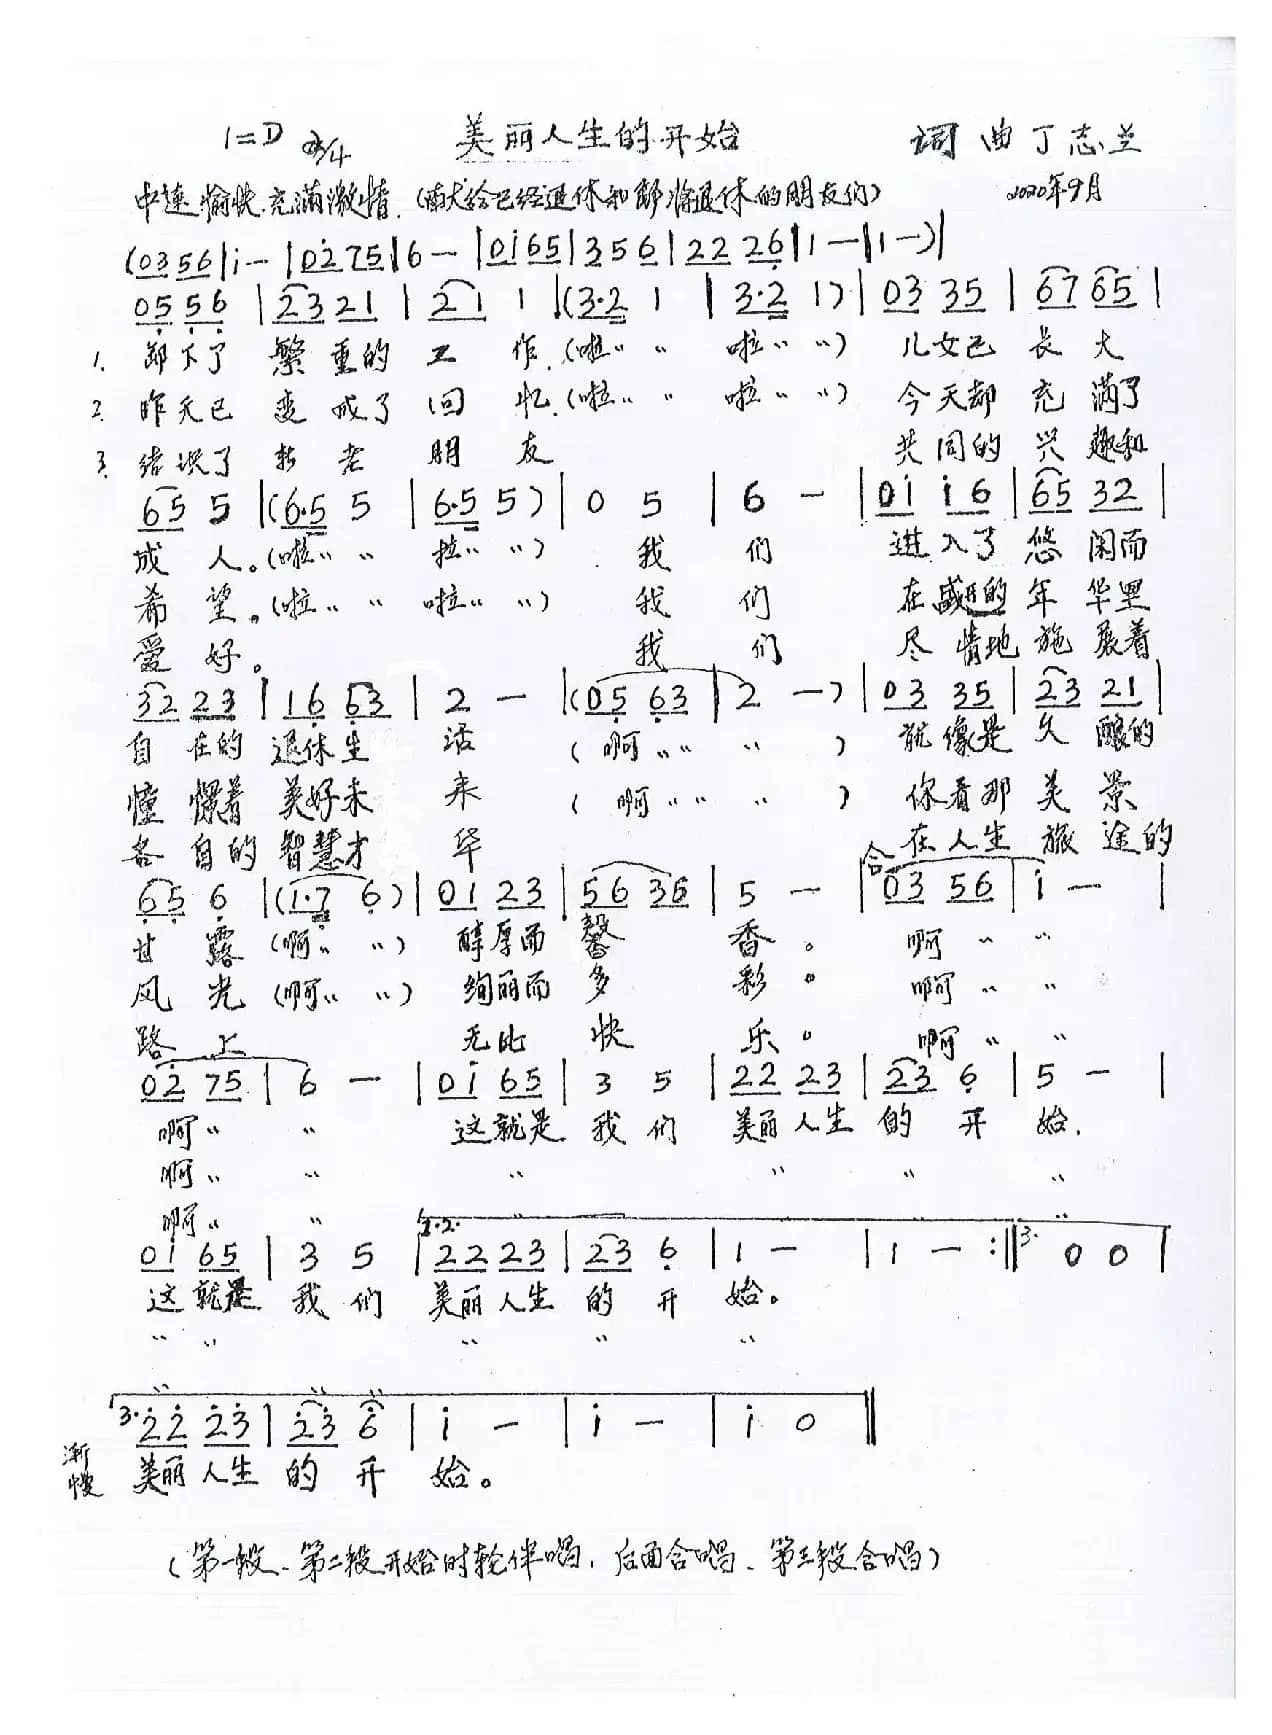 1=D 2/4 美丽人生的开始 词曲丁志兰
中速 愉快.充满激情.(献给已经退休和即将退休的朋友们) 2020年9月
(03 56 | i — | 02 75 | 6 — | 0i 65 | 3 5 6 | 22 26 | 1 — | 1 — ) |
05 56 | 23 21 | 2 1 1 | (3·2 1 | 3·2 1) | 03 35 | 67 65 |
1. 卸下了 繁重的 工作.(啦〃 〃 啦〃 〃) 儿女已 长大
2. 昨天已 变成了 回忆.(啦〃 〃 啦〃 〃) 今天却 充满了
3. 结识了 新老 朋友 共同的 兴趣和
65 5 | (6·5 5 | 6·5 5) | 0 5 | 6 — | 0i i6 | 65 32 |
成人。(啦〃 〃 拉〃 〃) 我们 进入了 悠闲而
希望。(啦〃 〃 啦〃 〃) 我们 在盛开的 年华里
爱好。 我们 尽情地 施展着
32 23 | 16 63 | 2 — | (05 63 | 2 —) | 03 35 | 23 21 |
自在的 退休生 活 (啊〃〃 〃) 就像是 久酿的
憧憬着 美好未 来 (啊〃〃 〃) 你看那 美景
各自的 智慧才 华 在人生 旅途的
65 6 | (1·7 6) | 01 23 | 56 36 | 5 — | 合 03 56 | i — |
甘露(啊〃 〃) 醇厚而 馨 香。 啊〃 〃
风光(啊〃 〃) 绚丽而 多 彩。 啊〃 〃
路上 无比 快 乐。 啊〃 〃
02 75 | 6 — | 0i 65 | 3 5 | 22 23 | 23 6 | 5 — |
啊〃 〃 这就是 我们 美丽人生 的 开 始.
啊〃 〃 〃 〃 〃 〃
啊〃 〃 〃 〃
1.2.
0i 65 | 3 5 | 22 23 | 23 6 | 1 — | 1 — :|| 3. 0 0 |
这就是 我们 美丽人生 的 开 始。
〃 〃 〃 〃 〃
〃 〃 〃
3. 22 23 | 23 6 | i — | i — | i 0 ||
渐慢 美丽人生 的 开 始。
(第一段、第二段开始时轮伴唱,后面合唱、第三段合唱)